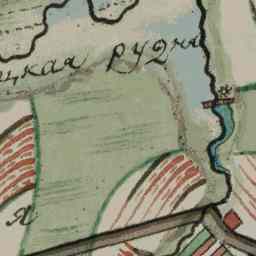 цкая рудня
я